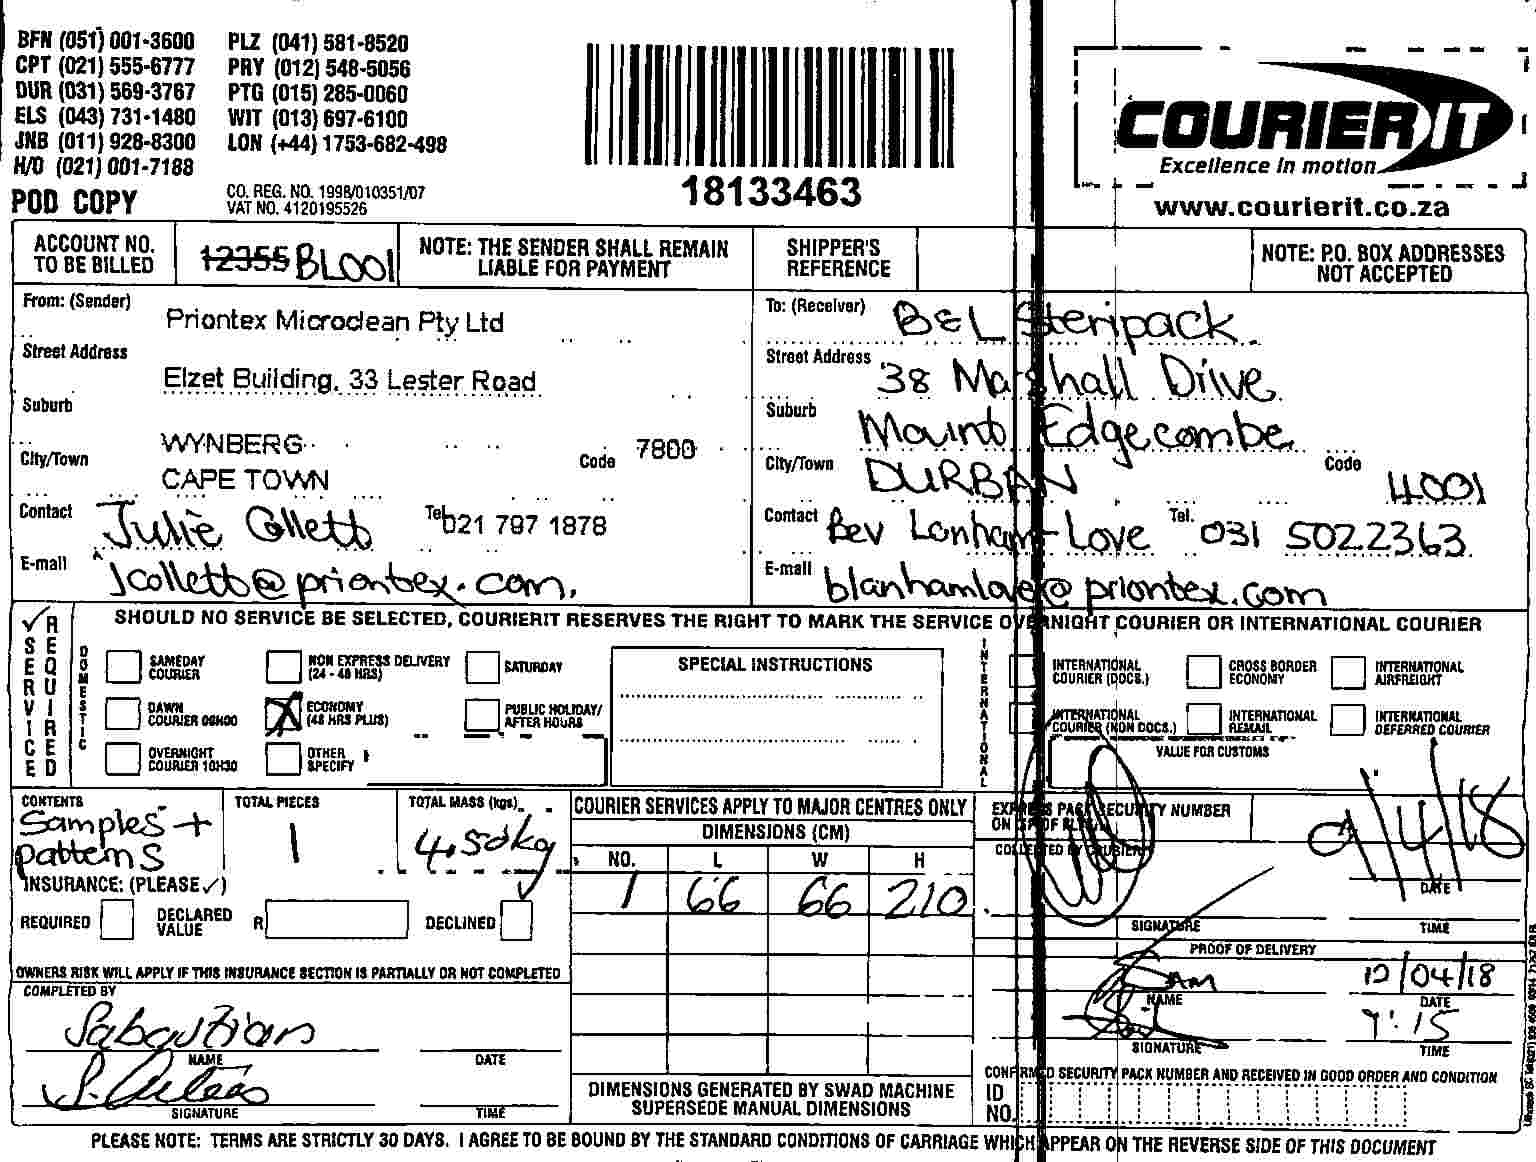 BFN (051) 001-3600 PLZ (041) 581-8520
CPT (021) 555-6777 PRY (012) 548-5056
DUR (031) 569-3767 PTG (015) 285-0060
ELS (043) 731-1480 WIT (013) 697-6100
JNB (011) 928-8300 LON (+44) 1753-682-498
H/O (021) 001-7188
POD COPY
CO. REG. NO. 1998/010351/07
VAT NO. 4120195526
18133463
COURIER IT
Excellence in motion
www.courierit.co.za
ACCOUNT NO. TO BE BILLED
12355 BL001
NOTE: THE SENDER SHALL REMAIN LIABLE FOR PAYMENT
SHIPPER'S REFERENCE
NOTE: P.O. BOX ADDRESSES NOT ACCEPTED
From: (Sender) Priontex Microclean Pty Ltd
Street Address Elzet Building, 33 Lester Road
Suburb WYNBERG
City/Town CAPE TOWN Code 7800
Contact Julie Collett Tel 021 797 1878
E-mail jcollett@priontex.com.
To: (Receiver) B&L Steripack.
Street Address 38 Marshall Drive
Suburb Mount Edgecombe
City/Town DURBAN Code 4001
Contact Bev Lanham-Love Tel. 031 502 2363
E-mail blanhamlove@priontex.com
SERVICE REQUIRED
SHOULD NO SERVICE BE SELECTED, COURIERIT RESERVES THE RIGHT TO MARK THE SERVICE OVERNIGHT COURIER OR INTERNATIONAL COURIER
DOMESTIC
SAMEDAY COURIER
NON EXPRESS DELIVERY (24 - 48 HRS)
SATURDAY
DAWN COURIER 09H00
ECONOMY (48 HRS PLUS)
PUBLIC HOLIDAY/ AFTER HOURS
OVERNIGHT COURIER 10H30
OTHER SPECIFY
SPECIAL INSTRUCTIONS
INTERNATIONAL
INTERNATIONAL COURIER (DOCS.)
CROSS BORDER ECONOMY
INTERNATIONAL AIRFREIGHT
INTERNATIONAL COURIER (NON DOCS.)
INTERNATIONAL REMAIL
INTERNATIONAL DEFERRED COURIER
VALUE FOR CUSTOMS
CONTENTS
Samples + patterns
TOTAL PIECES
1
TOTAL MASS (kgs)
4.50kg
INSURANCE: (PLEASE ✓)
REQUIRED
DECLARED VALUE R
DECLINED
OWNERS RISK WILL APPLY IF THIS INSURANCE SECTION IS PARTIALLY OR NOT COMPLETED
COMPLETED BY
NAME DATE
SIGNATURE TIME
COURIER SERVICES APPLY TO MAJOR CENTRES ONLY
DIMENSIONS (CM)
NO. L W H
1 66 66 210
DIMENSIONS GENERATED BY SWAD MACHINE
SUPERSEDE MANUAL DIMENSIONS
EXPRESS PACK SECURITY NUMBER
COLLECTED BY COURIER
DATE
SIGNATURE TIME
PROOF OF DELIVERY
Sam 12/04/18
NAME DATE
SIGNATURE TIME
CONFIRMED SECURITY PACK NUMBER AND RECEIVED IN GOOD ORDER AND CONDITION
ID NO.
PLEASE NOTE: TERMS ARE STRICTLY 30 DAYS. I AGREE TO BE BOUND BY THE STANDARD CONDITIONS OF CARRIAGE WHICH APPEAR ON THE REVERSE SIDE OF THIS DOCUMENT